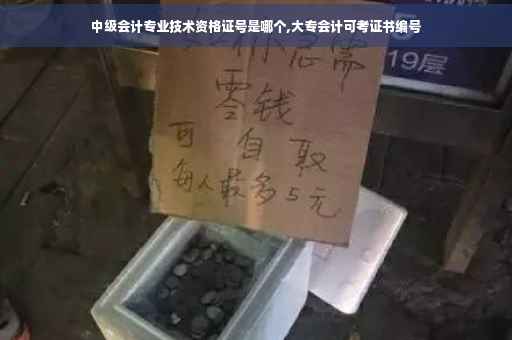 中级会计专业技术资格证号是哪个,大专会计可考证书编号
你急需
19层
零钱
可自取
每人最多5元